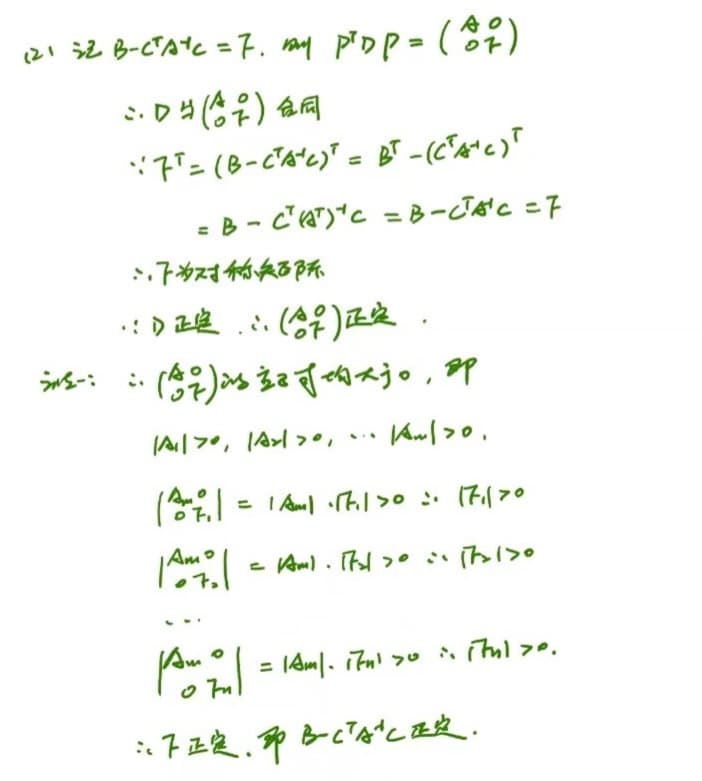 (2) 记 B-CᵀA⁻¹C = F. 则 PᵀDP = (A 0 0 F)
∴ D 与 (A 0 0 F) 合同
∵ Fᵀ = (B-CᵀA⁻¹C)ᵀ = Bᵀ - (CᵀA⁻¹C)ᵀ
= B - Cᵀ(Aᵀ)⁻¹C = B-CᵀA⁻¹C = F
∴ F为对称矩阵
∵ D 正定 . ∴ (A 0 0 F) 正定 .
法一: ∴ (A 0 0 F)的主子式均大于0 , 即
|A₁|>0, |A₂|>0, ... |Am|>0.
|Am 0 0 F₁| = |Am| · |F₁| >0 ∴ |F₁|>0
|Am 0 0 F₂| = |Am| · |F₂| >0 ∴ |F₂|>0
...
|Am 0 0 Fn| = |Am| · |Fn| >0 ∴ |Fn| >0.
∴ F 正定 . 即 B-CᵀA⁻¹C 正定 .